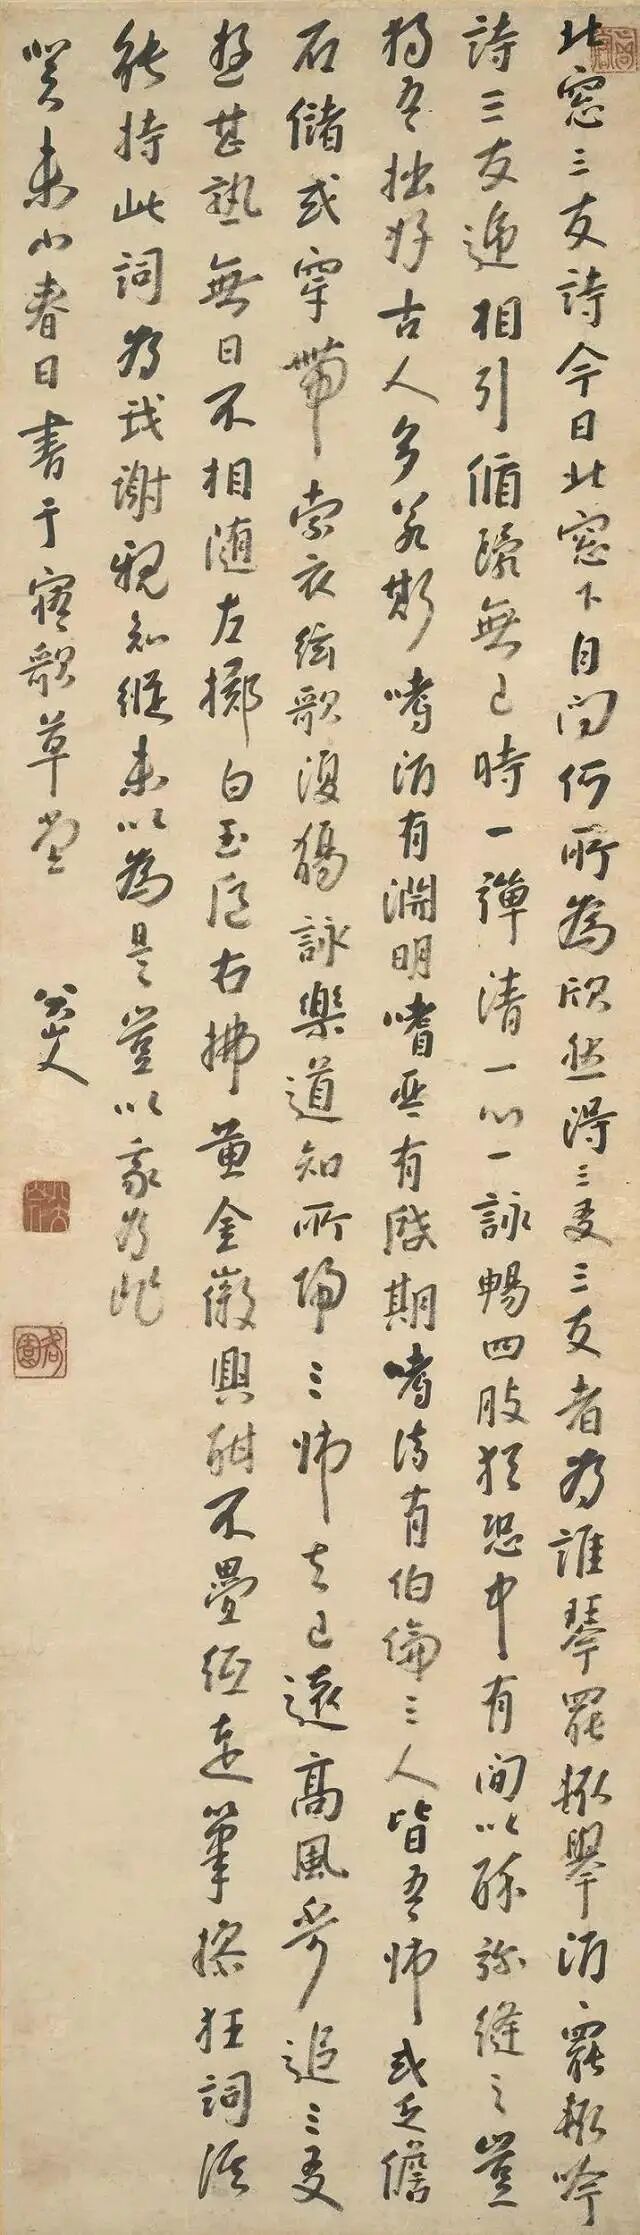 北窓三友詩今日北窓下自问何所為欣然得三友三友者為誰琴罷輒舉酒〻罷輒吟
詩三友遞相引循環無已時一彈清一心一詠暢四肢猶恐中有间以酔弥縫之豈
獨吾拙好古人多若斯嗜酒有淵明嗜琴有啟期嗜诗有伯倫三人皆吾師或乏儋
石儲或穿帶索衣絃歌復觴詠樂道知所歸三師去已遠高風不可追三友
游甚熟無日不相随左擲白玉巵右拂黃金徽興酣不疊紙走筆操狂詞誰
能持此詞為我謝親知縱未以為是豈以我為非
癸未小春日書于寤歌草堂 八大山人
何園